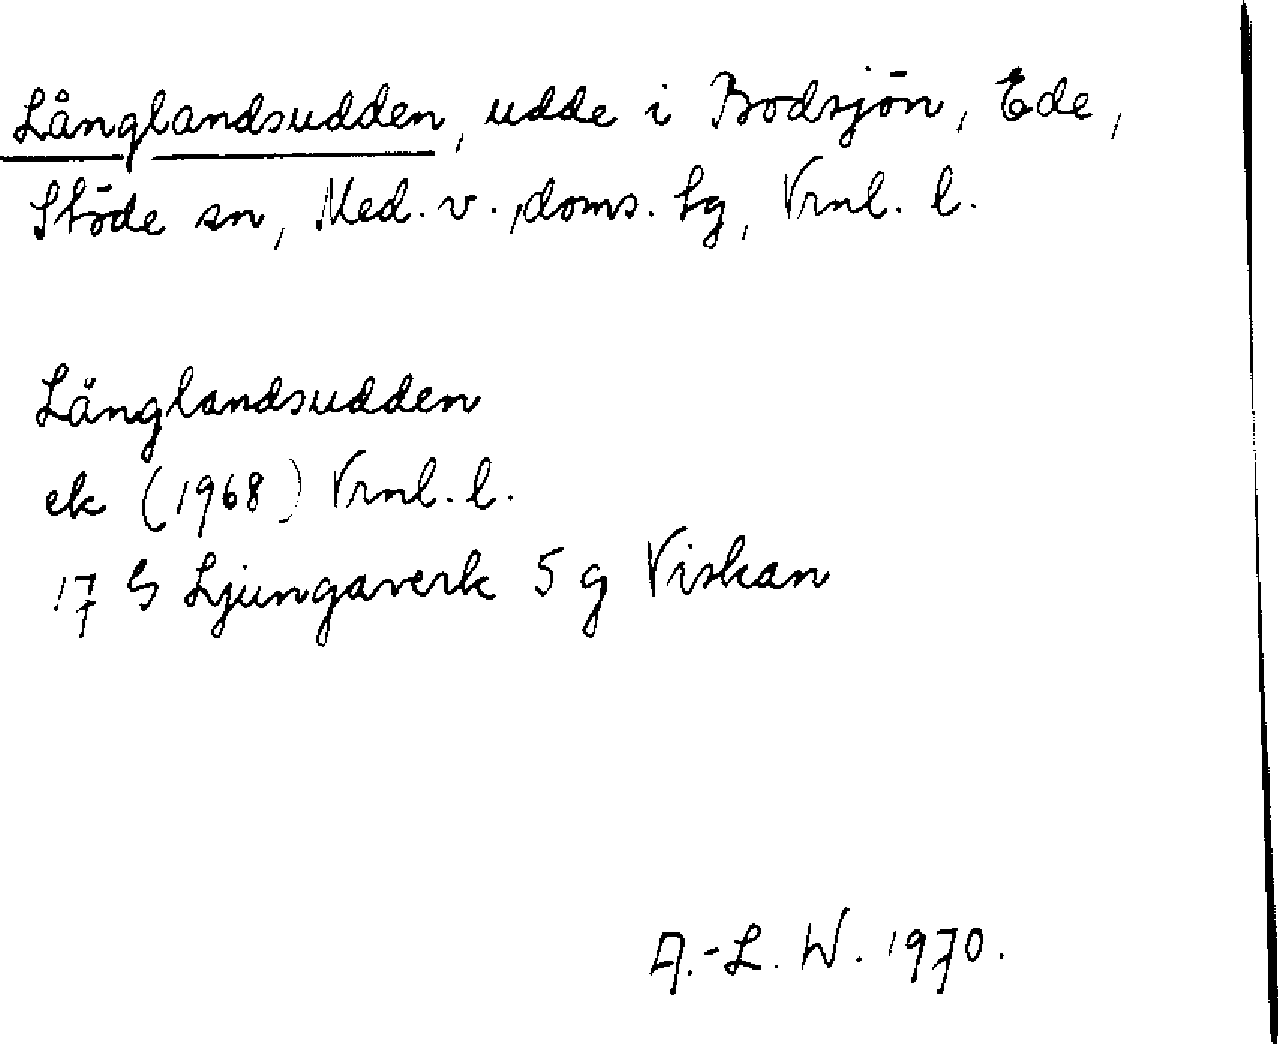 Långlandsudden, udde i Bodsjön, Ede,
Stöde sn, Med. v., doms. tg, Vrnl. l.
Långlandsudden
ek (1968) Vrnl. l.
17 G Ljungaverk 5 g Viskan
A.-L. W. 1970.